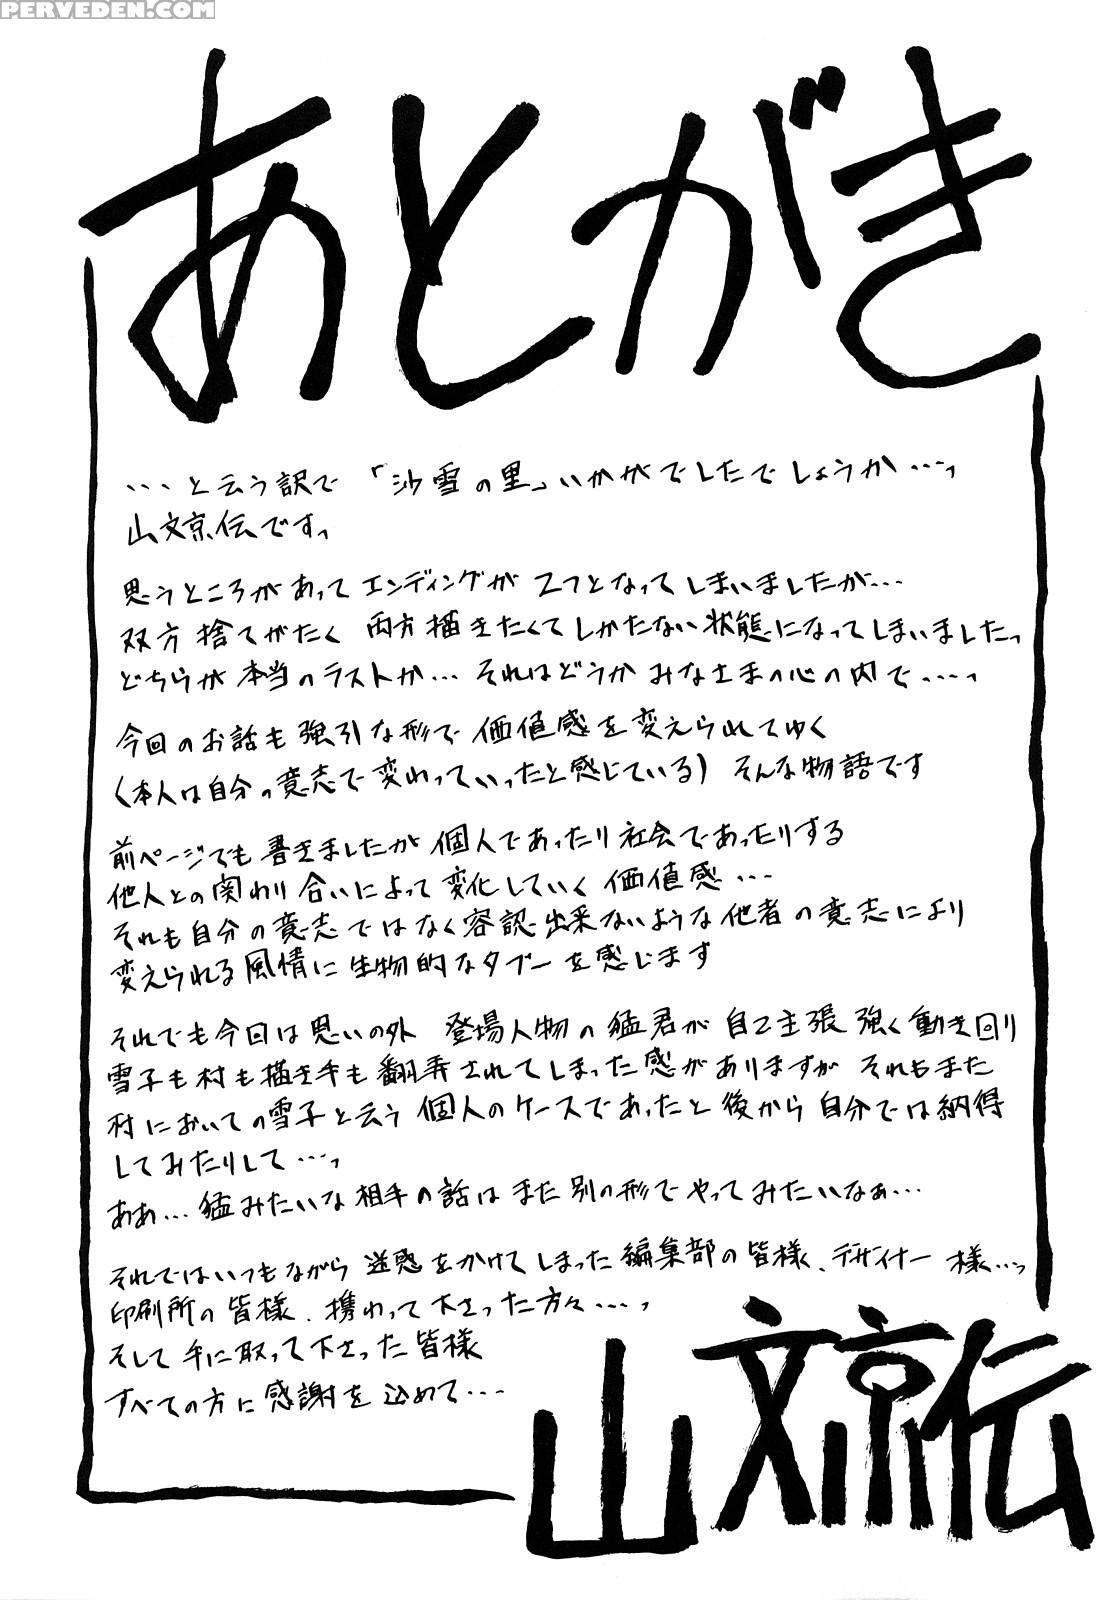 PERVEDEN.COM
あとがき
・・・と云う訳で「沙雪の里」いかがでしたでしょうか・・・っ
山文京伝ですっ
思うところがあってエンディングが2つとなってしまいましたが・・・
双方捨てがたく 両方描きたくてしかたない状態になってしまいましたっ
どちらが本当のラストか・・・それはどうかみなさまの心の内で・・・・っ
今回のお話も強引な形で価値感を変えられてゆく
(本人は自分の意志で変わっていったと感じている) そんな物語です
前ページでも書きましたが個人であったり社会であったりする
他人との関わり合いによって変化していく価値感・・・
それも自分の意志ではなく容認出来ないような他者の意志により
変えられる風情に生物的なタブーを感じます
それでも今回は思いの外 登場人物の猛君が自己主張強く動き回り
雪子も村も描き手も翻弄されてしまった感がありますが それもまた
村においての雪子と云う個人のケースであったと後から自分では納得
してみたりして・・・っ
ああ・・・猛みたいな相手の話はまた別の形でやってみたいなぁ・・・
それではいつもながら迷惑をかけてしまった編集部の皆様、デザイナー様・・・っ
印刷所の皆様、携わって下さった方々・・・・っ
そして手に取って下さった皆様
すべての方に感謝を込めて・・・
山文京伝